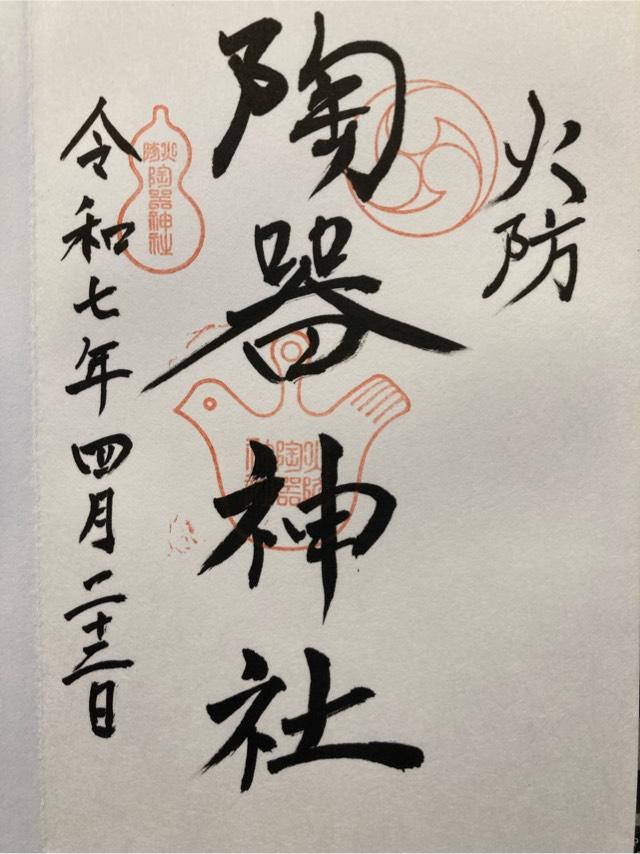 火防
陶器神社
令和七年四月二十三日
火防
陶器神社
火防
陶器
神社